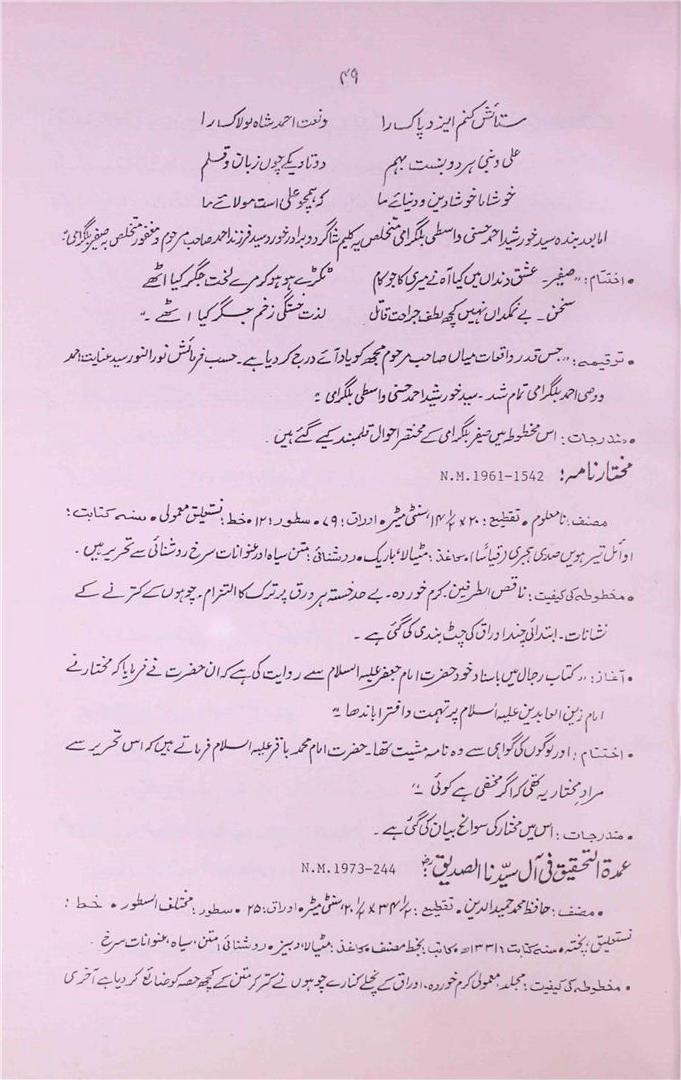 ۴۹
ستائش کنم ایزد پاک را ونعت احمد شاہ لولاک را
علی ونبی ہر دو نسبت بہم دوتا و یکے چوں زبان وقلم
خوشا ما خوشا دین و دنیائے ما کہ ہمچو علی است مولائے ما
اما بعد بندہ سید خورشید احمد حسنی واسطی بلگرامی متخلص بہ کلیم شاگرد وبرادر خورد سید فرزند احمد صاحب مرحوم ومغفور متخلص بہ صفیر بلگرامی"
• اختتام: "صفیر۔ عشق دنداں میں کیا آہ نے میری کاجو کام ٹکڑے ہو ہو کر مرے لخت جگر کیا اٹھے
سخن۔ بے نمکداں نہیں کچھ لطف جراحت قاتل لذت خستگی زخم جگر کیا اٹھے۔"
• ترقیمہ: "جس قدر واقعات میاں صاحب مرحوم مجھ کو یاد آئے درج کر دیا ہے۔ حسب فرمائش نور النور سید عنایت احمد
ووصی احمد بلگرامی تمام شد۔ سید خورشید احمد حسنی واسطی بلگرامی"
• مندرجات: اس مخطوطہ میں صفیر بلگرامی کے مختصر احوال قلمبند کیے گئے ہیں۔
مختار نامہ: N.M.1961-1542
مصنف: نامعلوم • تقطیع: ۲۰ × ۱۴/۲ سنٹی میٹر • اوراق: ۷۹ • سطور: ۱۲ • خط: نستعلیق معمولی • سنہ کتابت:
اوائل تیرھویں صدی ہجری (قیاساً) • کاغذ: مٹیالا، باریک • روشنائی: متن سیاہ اور عنوانات سرخ روشنائی سے تحریر ہیں۔
• مخطوطہ کی کیفیت: ناقص الطرفین۔ کرم خوردہ۔ بے حد خستہ ہر ورق پر ترک کا التزام۔ چوہوں کے کترنے کے
نشانات۔ ابتدائی چند اوراق کی چٹ بندی کی گئی ہے۔
• آغاز: "کتاب رجال میں باسناد خود حضرت امام جعفر علیہ السلام سے روایت کی ہے کہ ان حضرت نے فرمایا کہ مختار نے
امام زین العابدین علیہ السلام پر تہمت وافترا باندھا"
• اختتام: اور لوگوں کی گواہی سے وہ نامہ مشیت تھا۔ حضرت امام محمد باقر علیہ السلام فرماتے ہیں کہ اس تحریر سے
مراد مختار یہ تھی کہ اگر مخفی ہے کوئی۔"
• مندرجات: اس میں مختار کی سوانح بیان کی گئی ہے۔
عمدۃ التحقیق فی آل سیّدنا الصدیقؓ: N.M.1973-244
• مصنف: حافظ محمد حمید الدین • تقطیع: ۳۴/۲ × ۲۰/۲ سنٹی میٹر • اوراق: ۲۵ • سطور: مختلف السطور • خط:
نستعلیق، پختہ • سنہ کتابت ۱۳۳۱ھ • کاتب: بخط مصنف • کاغذ: مٹیالا، دبیز • روشنائی: متن، سیاہ، عنوانات سرخ۔
• مخطوطہ کی کیفیت: مجلد، معمولی کرم خوردہ، اوراق کے نچلے کنارے چوہوں نے کتر کر متن کے کچھ حصہ کو ضائع کر دیا ہے آخری